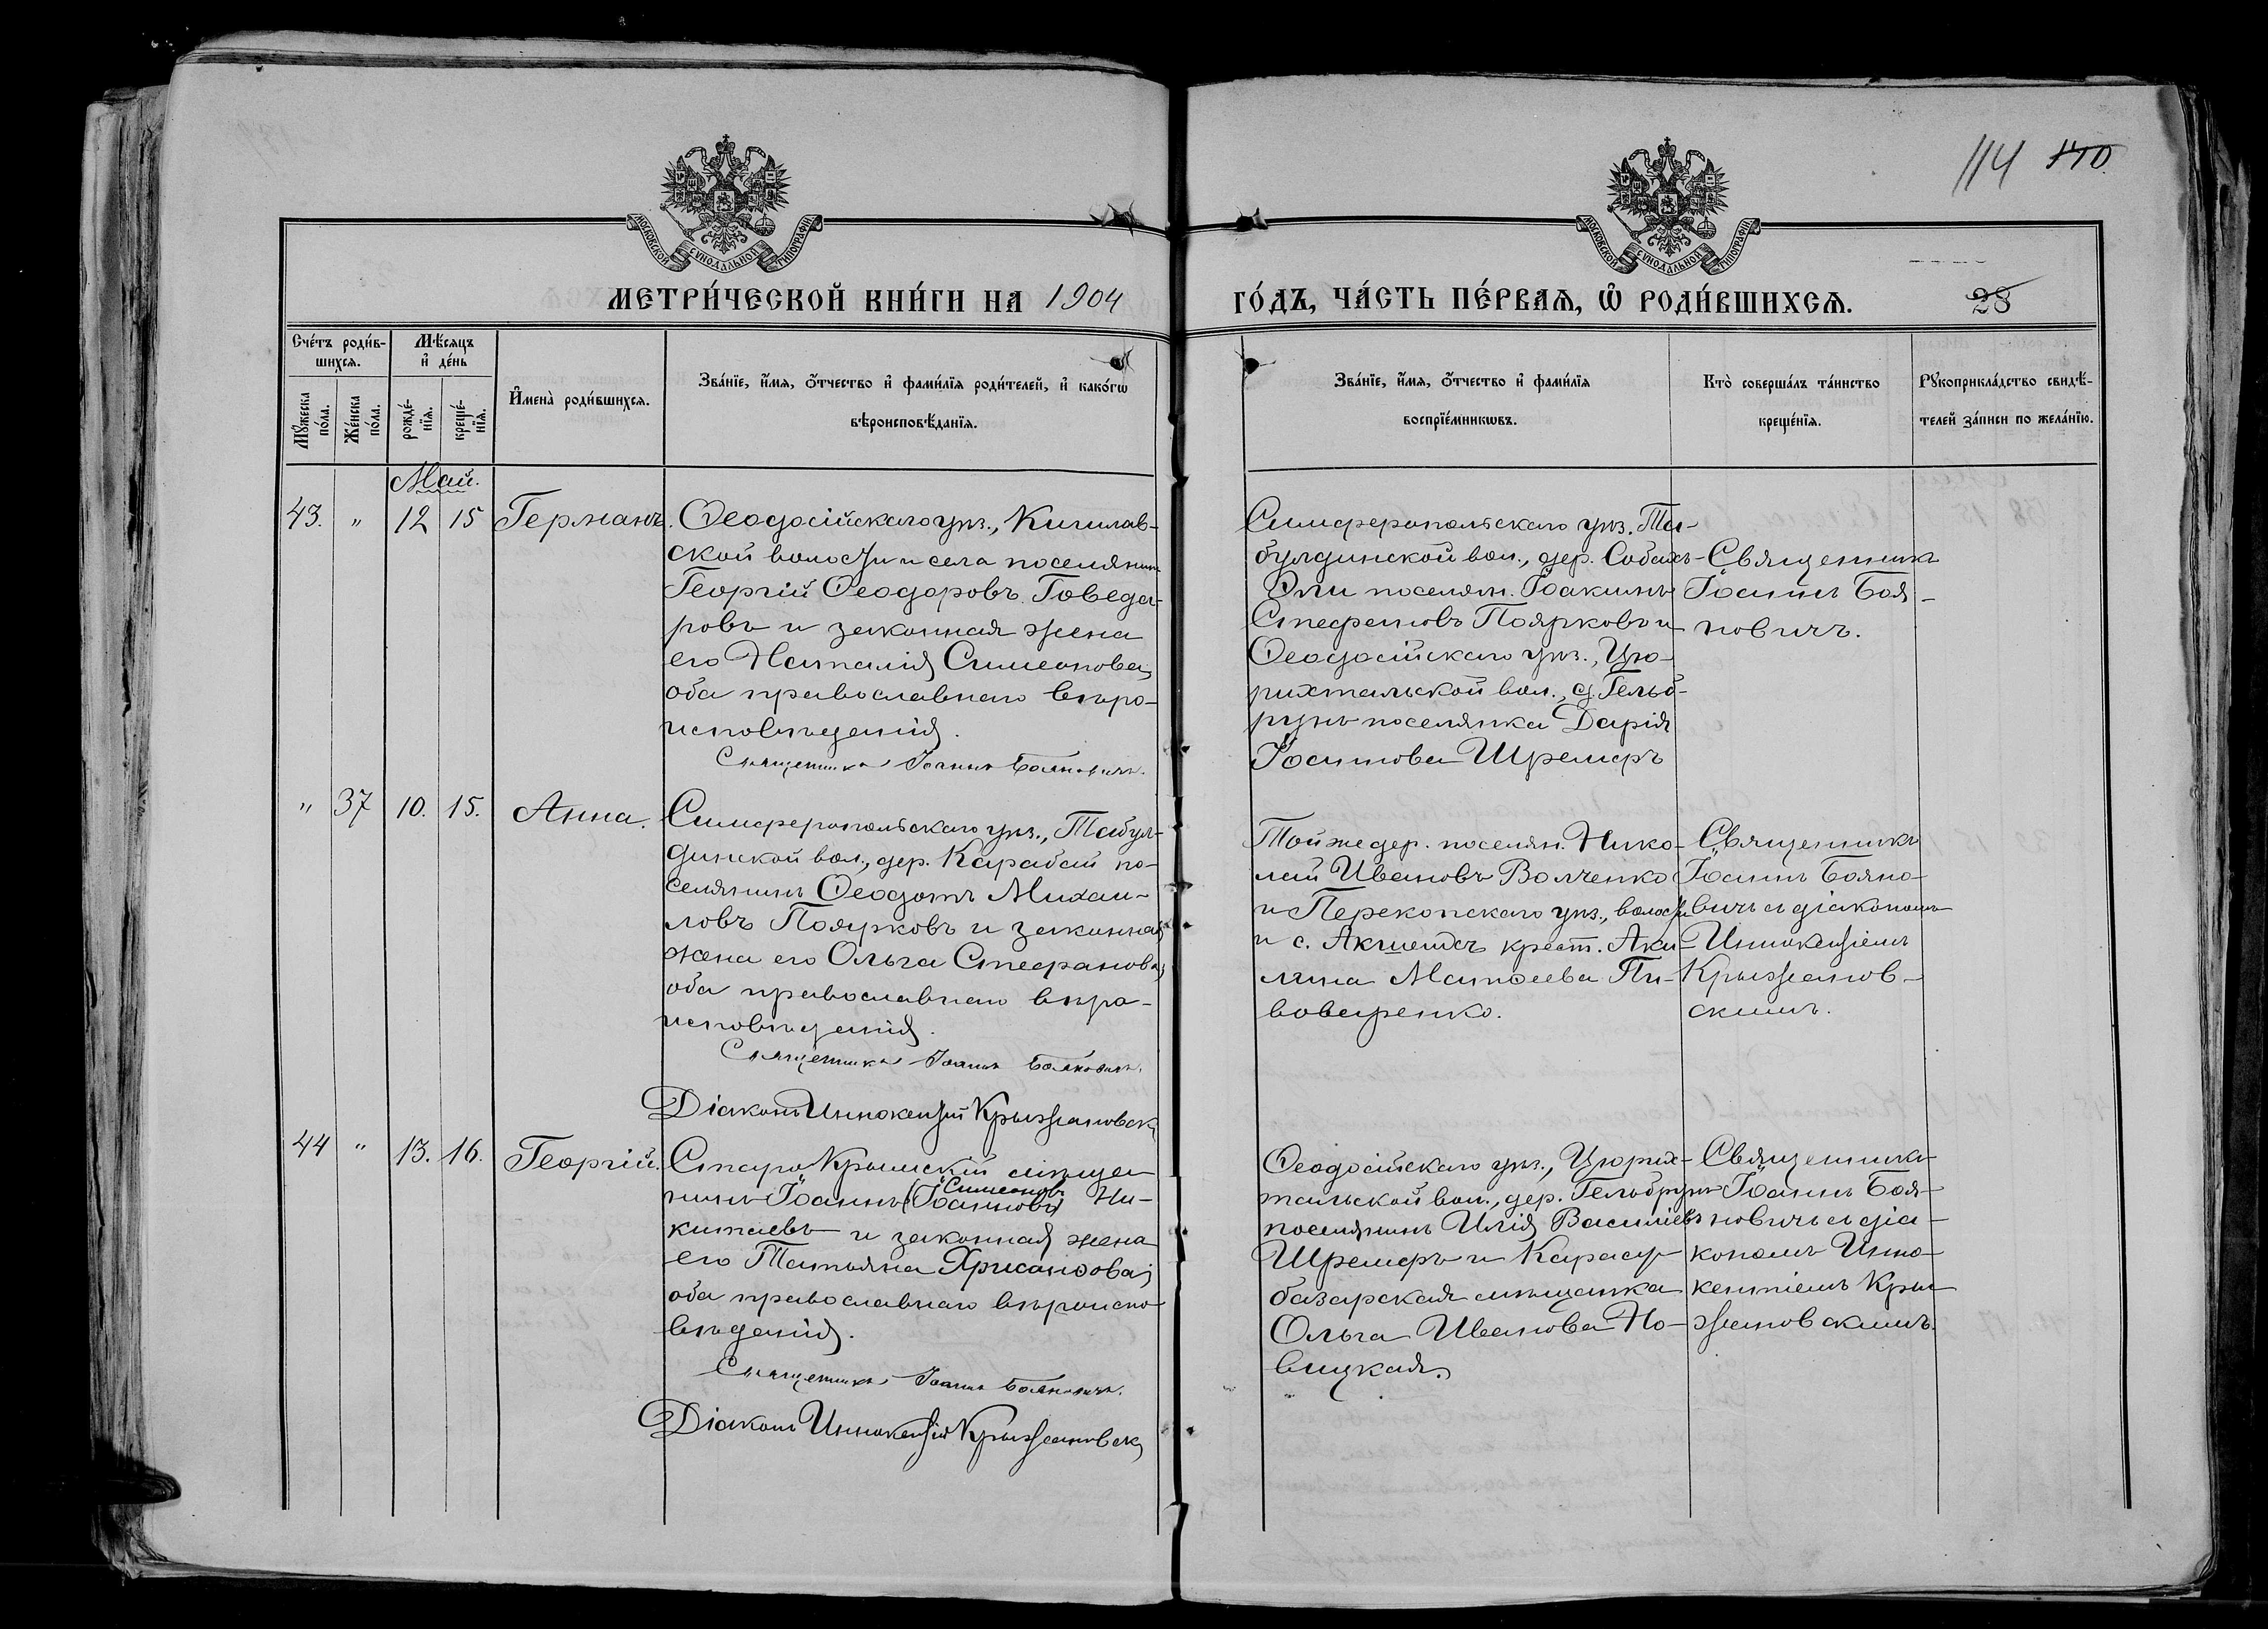 114 140.
МОСКОВСКОЙ СѴНОДАЛЬНОЙ ТИПОГРАФІИ
МОСКОВСКОЙ СѴНОДАЛЬНОЙ ТИПОГРАФІИ
МЕТРИ́ЧЕСКОЙ КНИ́ГИ НА 1904
ГО́ДЪ, ЧА́СТЬ ПЕ́РВАѦ, Ѡ҆ РОДИ́ВШИХСѦ.
28
Сче́тъ роди́в-
шихсѧ.
Мꙋ́жеска по́ла.
Же́нска по́ла.
Мѣ́сѧцъ
и҆ де́нь
рожде́-
нїѧ.
креще́-
нїѧ.
И҆мена̀ роди́вшихсѧ.
Зва́нїе, и҆́мѧ, ѻ҆́тчество и҆ фами́лїѧ роди́телей, и҆ како́гѡ
вѣроисповѣ́данїѧ.
Зва́нїе, и҆́мѧ, ѻ҆́тчество и҆ фами́лїѧ
воспрїе́мникѡвъ.
Кто̀ соверша́лъ та́инство
креще́нїѧ.
Рꙋкоприкла́дство свидѣ́-
телей за́писи по жела́нїю.
Май.
43. " 12 15 Германъ.
Ѳеодосійскаго уѣз., Кишлав-
ской волости и села поселянинъ
Георгій Ѳеодоровъ Говеда-
ровъ и законная жена
его Наталія Симеонова,
оба православнаго вѣро-
исповѣданія.
Священникъ Іоаннъ Бояновичъ.
Симферопольскаго уѣз. Та-
булдинской вол., дер. Собахъ-
Эли поселян. Іоакимъ
Стефановъ Поярковъ и
Ѳеодосійскаго уѣз., Цю-
рихтальской вол., д. Гельб-
рунъ поселянка Дарія
Іосифова Шремфъ
Священникъ
Іоаннъ Боя-
новичъ.
" 37 10. 15. Анна.
Симферопольскаго уѣз., Табул-
динской вол., дер. Карабай по-
селянинъ Ѳеодотъ Михаи-
ловъ Поярковъ и законная
жена его Ольга Стефанова,
оба православнаго вѣро-
исповѣданія.
Священникъ Іоаннъ Бояновичъ.
Діаконъ Иннокентій Крыжановскій
Той же дер. поселян. Нико-
лай Ивановъ Волченко
и Перекопскаго уѣз., волости
и с. Акшеихъ крест. Аки-
лина Матѳеева Пи-
воваренко.
Священникъ
Іоаннъ Бояно-
вичъ съ діакономъ
Иннокентіемъ
Крыжанов-
скимъ.
44 " 13. 16. Георгій.
Старо Крымскій мѣща-
Симеоновъ
нинъ Іоаннъ (Іоанновъ) Ни-
китаевъ и законная жена
его Татьяна Хрисанѳова,
оба православнаго вѣроиспо-
вѣданія.
Священникъ Іоаннъ Бояновичъ.
Діаконъ Иннокентій Крыжановскій
Ѳеодосійскаго уѣз., Цюрих-
тальской вол., дер. Гельбрунъ
поселянинъ Илія Василіевъ
Шремфъ и Карасу-
базарская мѣщанка
Ольга Иванова Но-
вицкая.
Священникъ
Іоаннъ Боя-
новичъ съ діа-
кономъ Инно-
кентіемъ Кры-
жановскимъ.